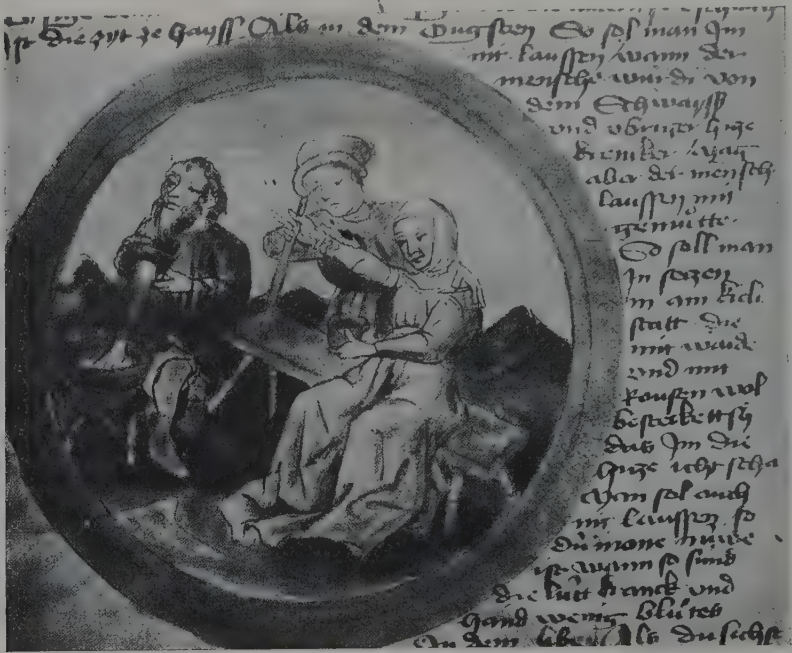 Ist die zyt ze hayss Als in dem Ougsten So sol man Im
nit laussen wann der
mensche wurdi von
dem Schwayss
und übriger hitze
krencker mag
aber der mensch
laussen mit
gemütte
So soll man
In setzen
in ain
statt die
mit
und mit
Rousen wol
das Im die
hitze icht scha
Man sol auch
nit laussen so
du mone nüwe
ist wann so sind
die lüt kranck und
hand wenig blütes
An dem Als du sichst